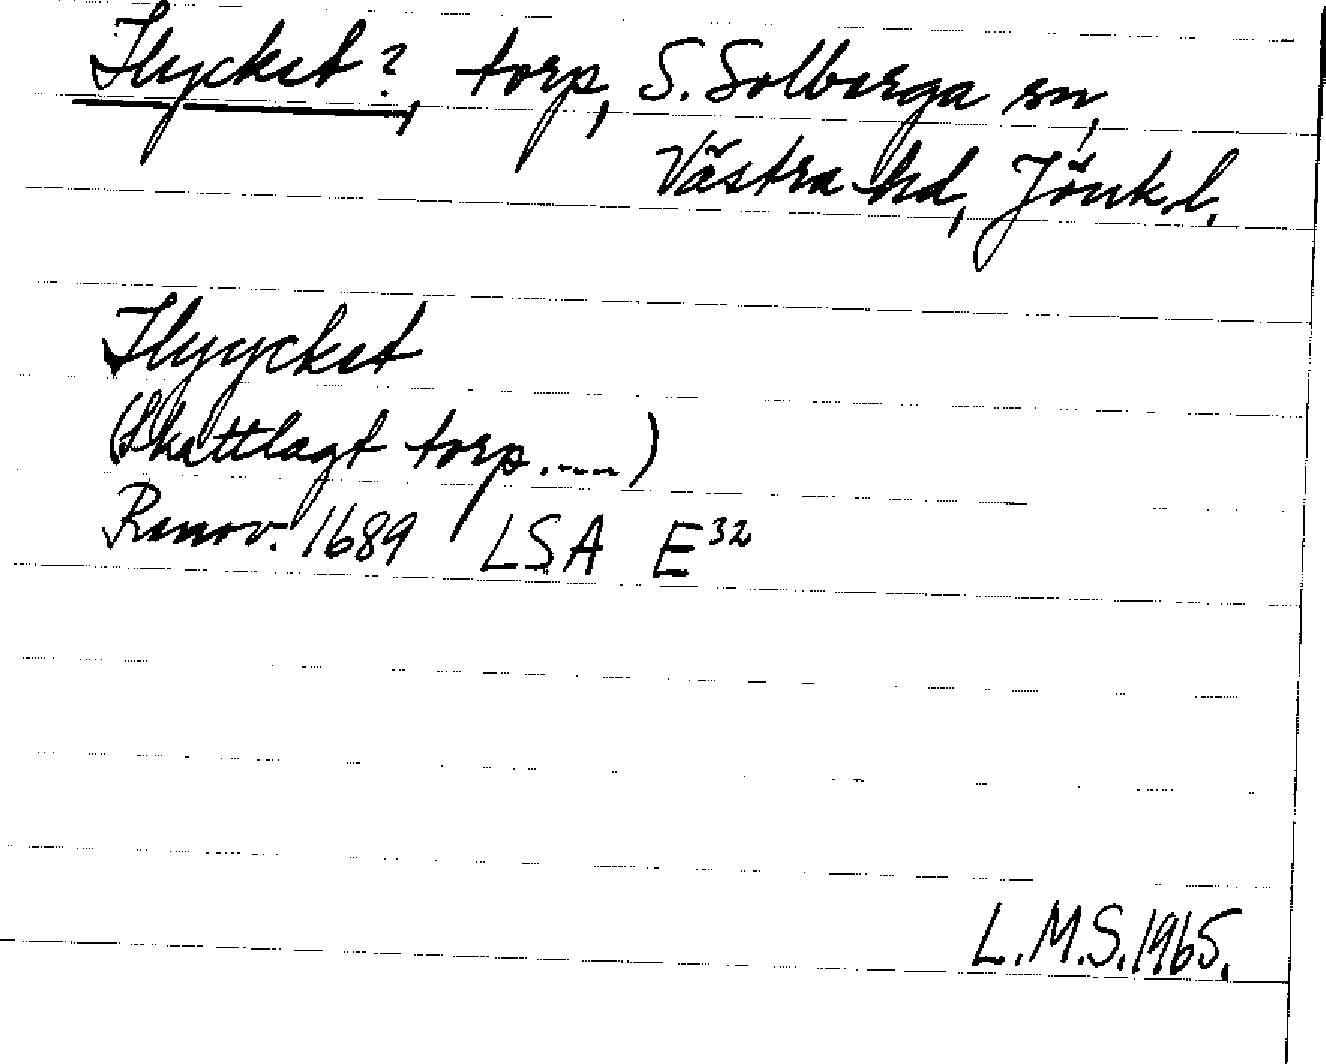 Flycket?, torp, S. Solberga sn,
Västra hd, Jönk.l.
Flyycket
(Skattlagt torp.....)
Renov. 1689 LSA E³²
L.M.S. 1965.